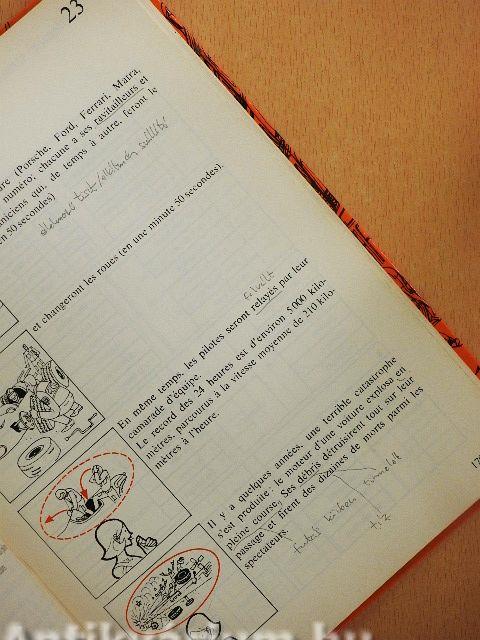 23
re (Porsche, Ford, Ferrari, Matra,
numéro; chacune a ses ravitailleurs et
niciens qui, de temps à autre, feront le
en 50 secondes)
et changeront les roues (en une minute 50 secondes).
En même temps, les pilotes seront relayés par leur
camarade d'équipe.
Le record des 24 heures est d'environ 5 000 kilo-
mètres, parcourus à la vitesse moyenne de 210 kilo-
mètres à l'heure.
Il y a quelques années, une terrible catastrophe
s'est produite : le moteur d'une voiture explosa en
pleine course. Ses débris détruisirent tout sur leur
passage et firent des dizaines de morts parmi les
spectateurs.
tíz
Antikvarium.hu